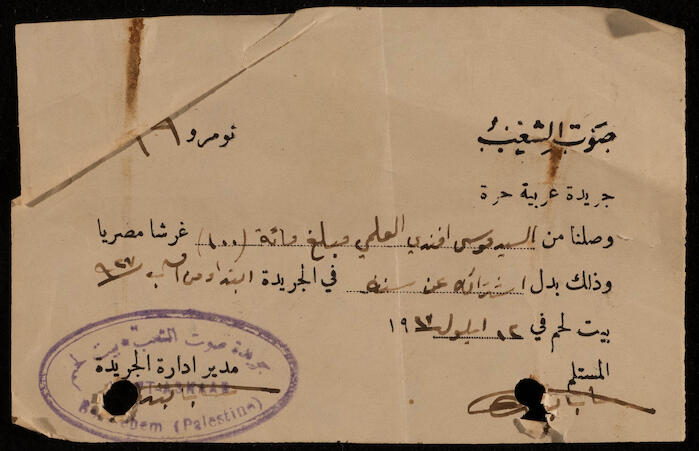 صَوْتُ الشَّعْبُ
نومرو ١٦
جريدة عربية حرة
وصلنا من السيد موسى افندي العلمي مبلغ مائة (١٠٠) غرشا مصريا
وذلك بدل اشتراكه عن سنة في الجريدة ابتداء من ٩٢٧
بيت لحم في ١٢ ايلول ١٩٢٧
المستلم
مدير ادارة الجريدة
جريدة صوت الشعب بيت لحم
(Palestine)